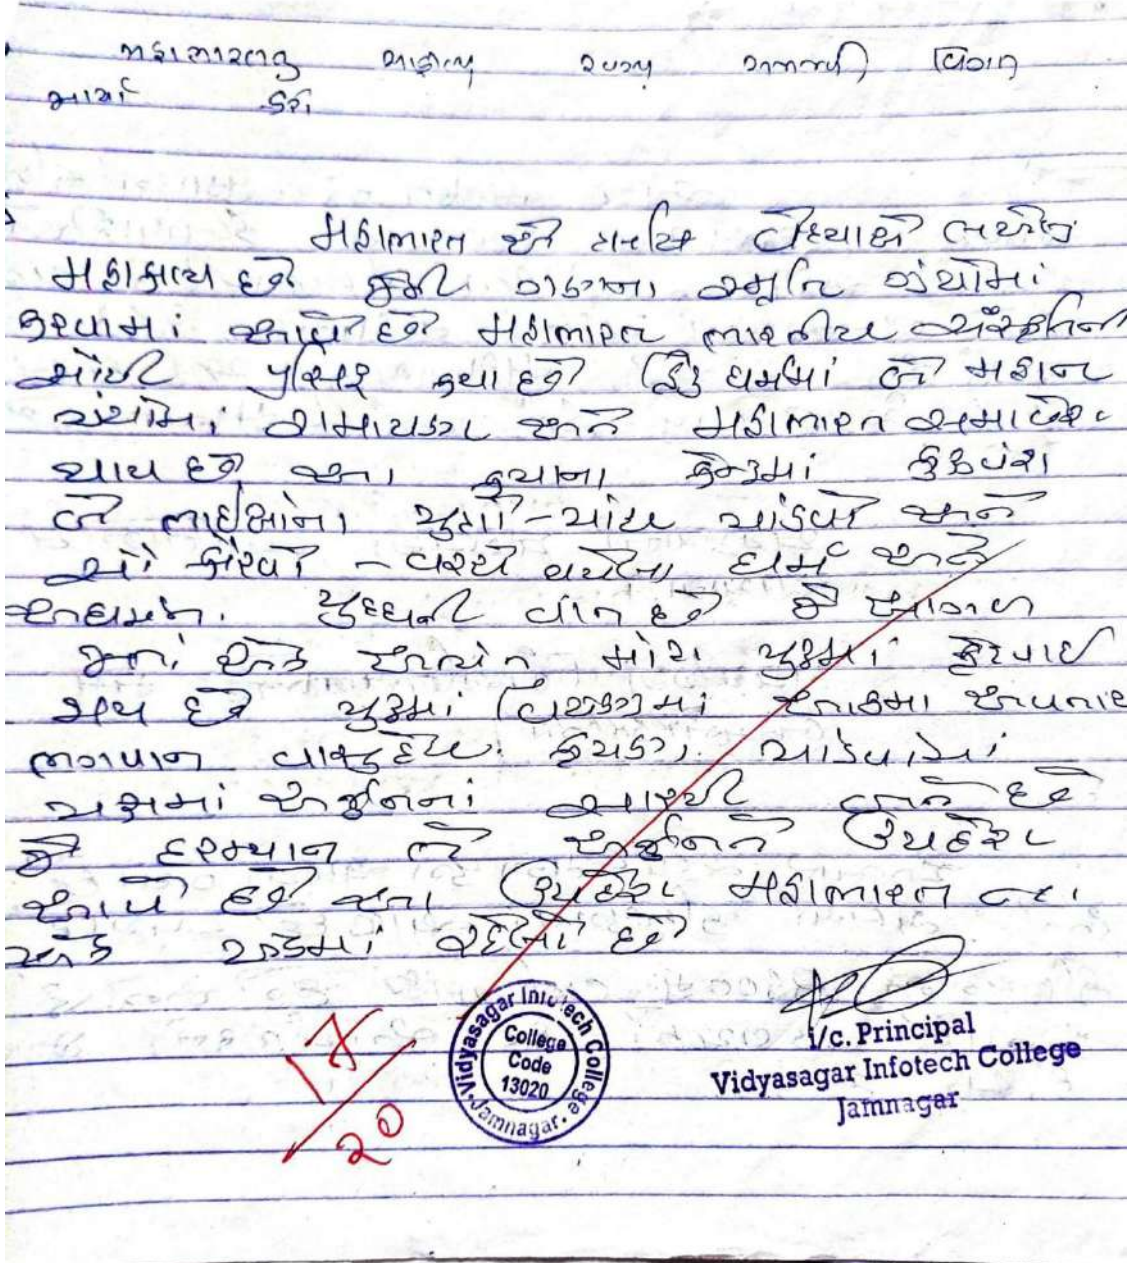 મહાભારતનું સાહિત્ય સ્વરૂપ સમજાવી વિગતે
ચર્ચા કરો.
મહાભારત એ મહર્ષિ વેદવ્યાસે રચેલું
મહાકાવ્ય છે જેની ગણના સ્મૃતિ ગ્રંથોમાં
કરવામાં આવે છે મહાભારત ભારતીય સંસ્કૃતિની
સૌથી પ્રસિદ્ધ કથા છે હિંદુ ધર્મમાં બે મહાન
ગ્રંથોમાં રામાયણ અને મહાભારત સમાવેશ
થાય છે આ કથાના કેન્દ્રમાં કુરુવંશ
બે ભાઈઓના પુત્રો - પાંચ પાંડવો અને
સો કૌરવો - વચ્ચે થયેલા ધર્મ અને
અધર્મના યુદ્ધની વાત છે જે આગળ
જતાં એક અત્યંત મોટા યુદ્ધમાં ફેરવાઈ
જાય છે યુદ્ધમાં આઠમા અવતાર
ભગવાન વાસુદેવ પાંડવોના
પક્ષમાં અર્જુનનાં સારથી બને છે
જે દરમ્યાન તે અર્જુનને ઉપદેશ
આપે છે આ ઉપદેશ મહાભારત ના
એક છે
17/20
Vidyasagar Infotech College
College
Code
13020
Jamnagar.
i/c. Principal
Vidyasagar Infotech College
Jamnagar